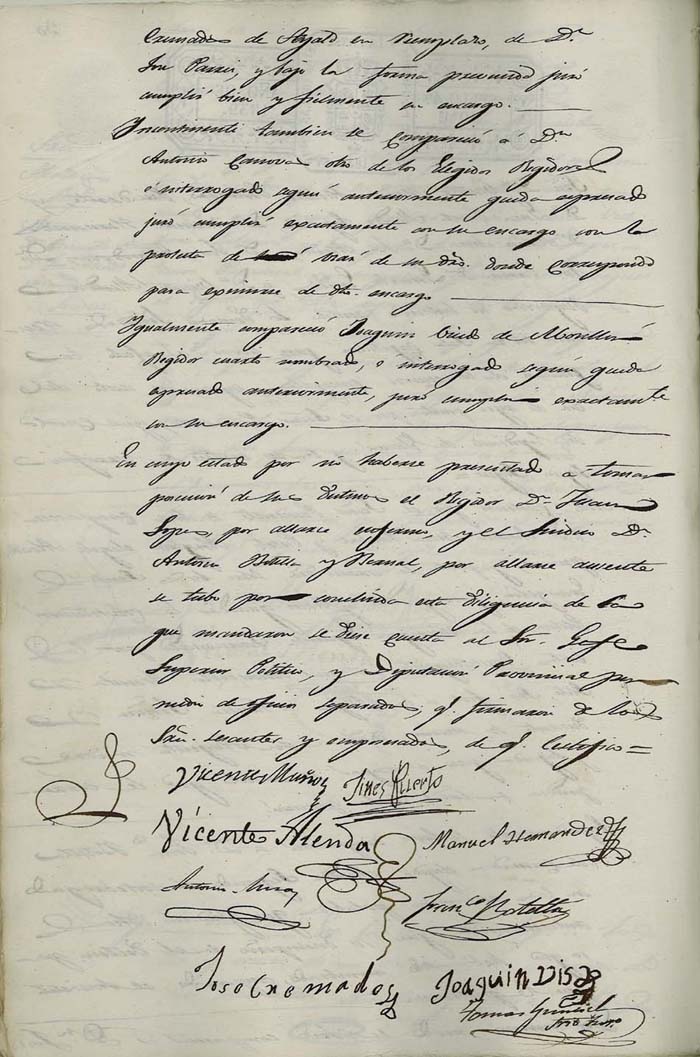 Cremades de Agato en remplazo, de Dn.
José y bajo la forma prevenida juró
cumplir bien y fielmente su encargo.
Incontinenti tambien se compareció á Dn.
Antonio Canovas otro de los Elegidos Regidores
é interrogado segun anteriormente queda espresado
juró cumplir exactamente con su encargo con la
protesta de usar de su dro. donde corresponda
para eximirse de dho. encargo
Igualmente compareció Joaquin de
Regidor cuarto nombrado, é interrogado segun queda
espresado anteriormente, juró cumplir exactamte.
con su encargo.
En cuyo estado por no haberse presentado a tomar
posecion de sus destinos el Regidor Dn. Juan
Lopez, por allarse enfermo, y el Sindico Dn.
Antonio Botella y Bernal, por allarse ausente
se tubo por concluida esta diligencia de la
que mandaron se diese cuenta al Sor. Gefe
Superior Politico, y Diputacion Provincial por
medio de oficios separados, q. firmaron de los
Sres. cesantes y emposesados, de q. Certifico=
Vicente Muñoz Gines Puerto
Vicente Alenda Manuel Hernandez
Antonio Franco. Botella
Jose Cremades Joaquin
Tomas